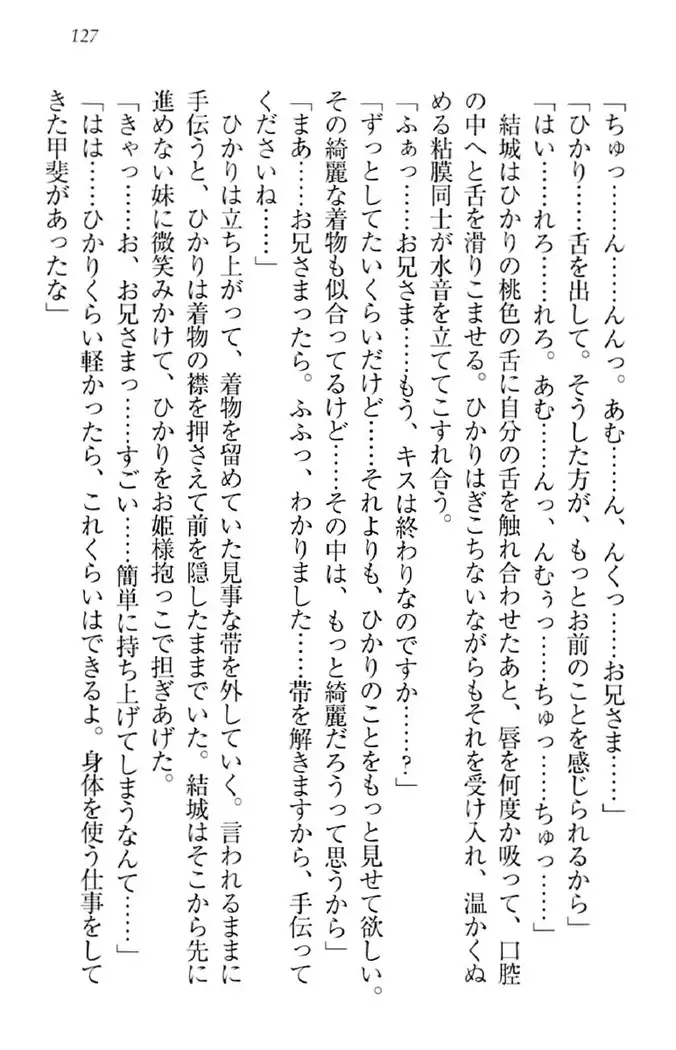 127
「ちゅっ……ん……んんっ。あむ……ん、んくっ……お兄さま……」
「ひかり……舌を出して。そうした方が、もっとお前のことを感じられるから」
「はい……れろ……れろ。あむ……んっ、んむぅっ……ちゅっ……ちゅっ……」
　結城はひかりの桃色の舌に自分の舌を触れ合わせたあと、唇を何度か吸って、口腔
の中へと舌を滑りこませる。ひかりはぎこちないながらもそれを受け入れ、温かくぬ
める粘膜同士が水音を立ててこすれ合う。
「ふぁっ……お兄さま……もう、キスは終わりなのですか……？」
「ずっとしてたいくらいだけど……それよりも、ひかりのことをもっと見せて欲しい。
その綺麗な着物も似合ってるけど……その中は、もっと綺麗だろうって思うから」
「まあ……お兄さまったら。ふふっ、わかりました……帯を解きますから、手伝って
くださいね……」
　ひかりは立ち上がって、着物を留めていた見事な帯を外していく。言われるままに
手伝うと、ひかりは着物の襟を押さえて前を隠したままでいた。結城はそこから先に
進めない妹に微笑みかけて、ひかりをお姫様抱っこで担ぎあげた。
「きゃっ……お、お兄さまっ……すごい……簡単に持ち上げてしまうなんて……」
「はは……ひかりくらい軽かったら、これくらいはできるよ。身体を使う仕事をして
きた甲斐があったな」